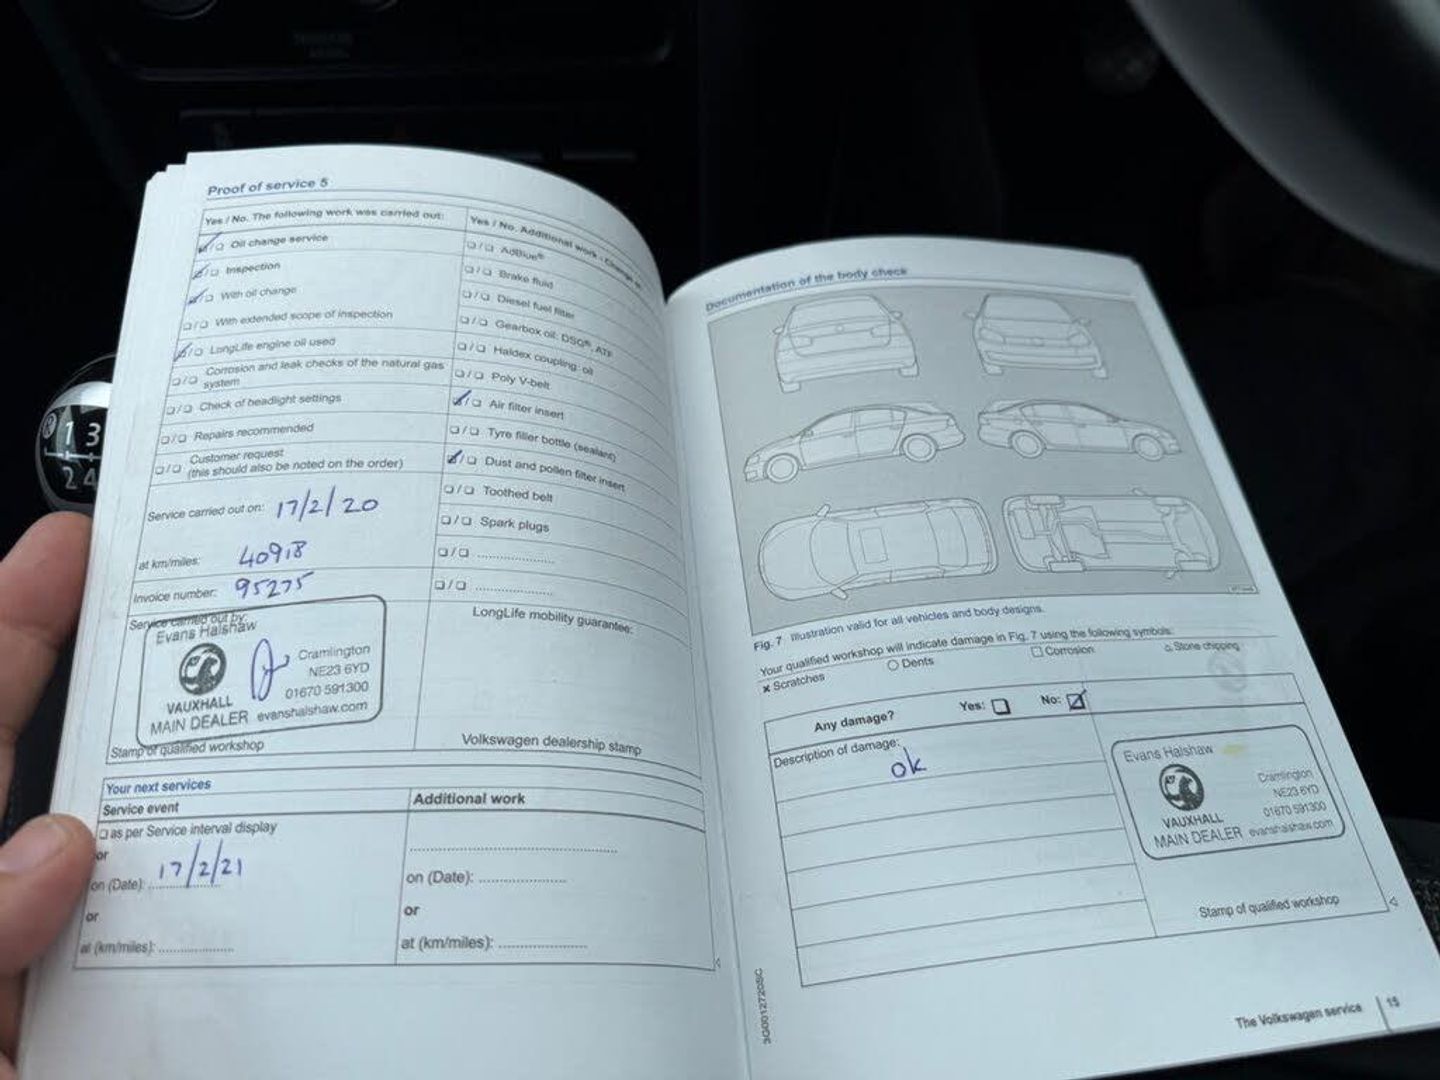 Proof of service 5
Yes / No. The following work was carried out:
Oil change service
Inspection
With oil change
With extended scope of inspection
LongLife engine oil used
Corrosion and leak checks of the natural gas
system
Check of headlight settings
Repairs recommended
Customer request
(this should also be noted on the order)
Service carried out on: 17/2/20
at km/miles: 40918
Invoice number: 95275
Service carried out by:
Evans Halshaw
Cramlington
NE23 6YD
01670 591300
VAUXHALL
MAIN DEALER evanshalshaw.com
Stamp of qualified workshop
Yes / No. Additional work - Change
AdBlue®
Brake fluid
Diesel fuel filter
Gearbox oil: DSG®, ATF
Haldex coupling: oil
Poly V-belt
Air filter insert
Tyre filler bottle (sealant)
Dust and pollen filter insert
Toothed belt
Spark plugs
LongLife mobility guarantee:
Volkswagen dealership stamp
Your next services
Service event
as per Service interval display
or
on (Date): 17/2/21
or
at (km/miles):
Additional work
on (Date):
or
at (km/miles):
Documentation of the body check
Fig. 7 Illustration valid for all vehicles and body designs.
Your qualified workshop will indicate damage in Fig. 7 using the following symbols:
× Scratches
Dents
Corrosion
Stone chipping
Any damage? Yes: No:
Description of damage:
ok
Evans Halshaw
Cramlington
NE23 6YD
01670 591300
VAUXHALL
MAIN DEALER evanshalshaw.com
Stamp of qualified workshop
3G0012720SC
The Volkswagen service 15
1 3
2 4